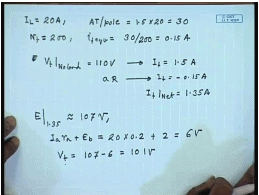 I_L = 20A, AT/pole = 1.5×20 = 30
N_f = 200, I_f eqv = 30/200 = 0.15 A
V_t|No load = 110V → I_f = 1.5 A
aR → I_f = -0.15A
I_f|Net = 1.35A
E|1.35 ≈ 107V,
I_a r_a + E_b = 20×0.2 + 2 = 6V
V_t = 107-6 = 101V